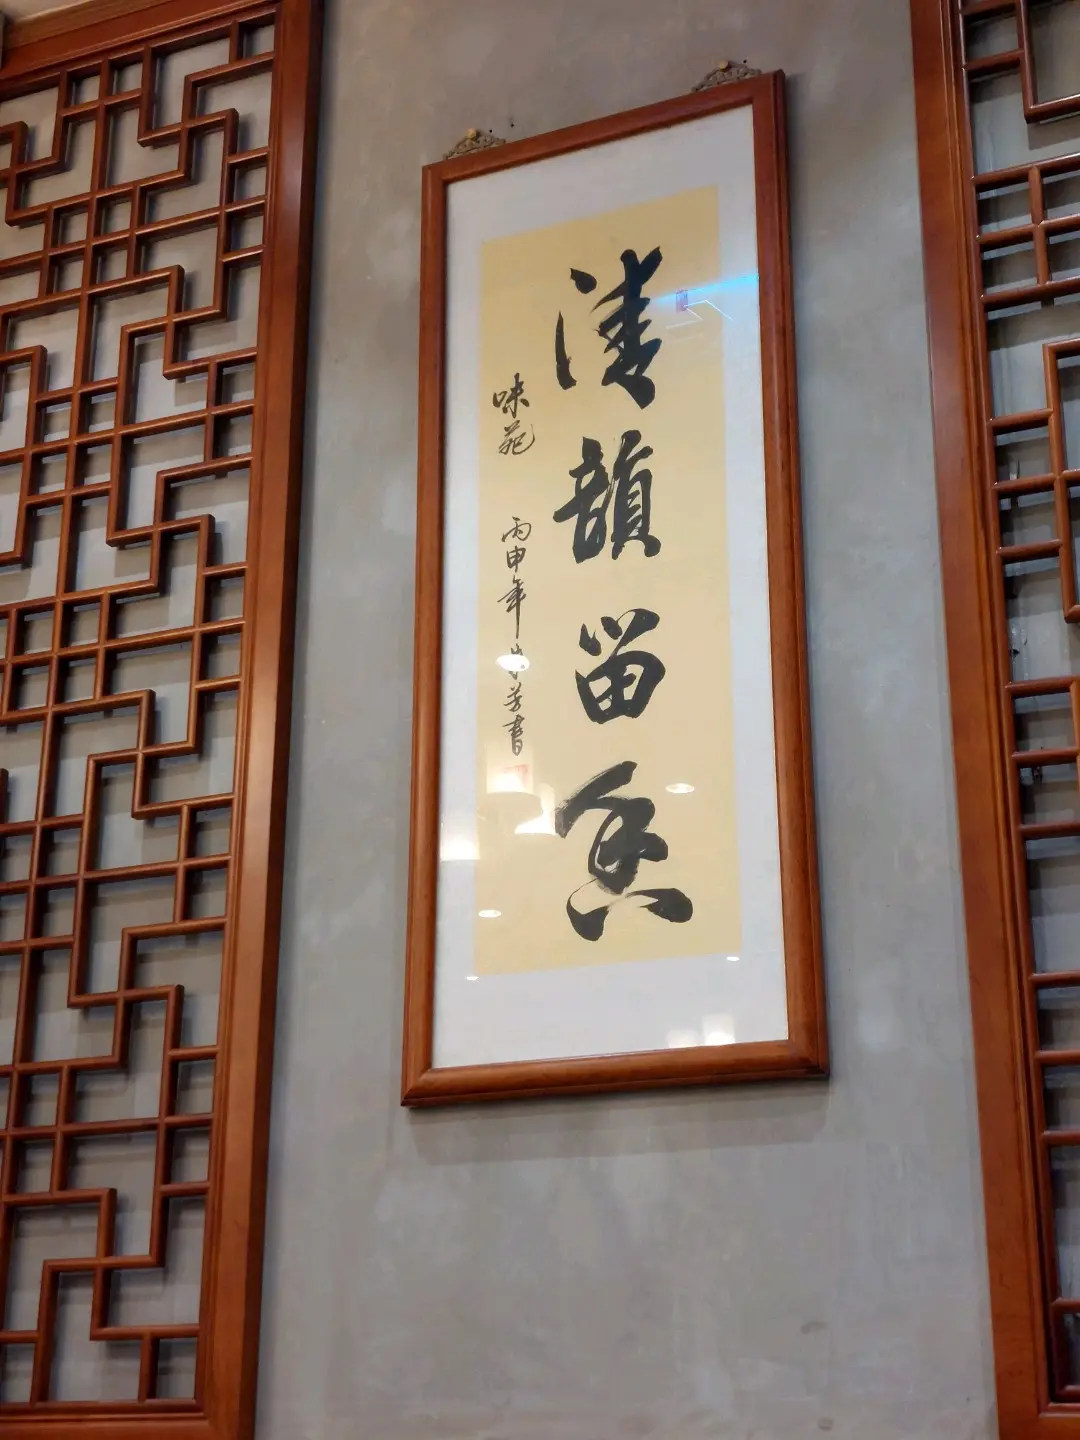 清韻留香
味苑
丙申年 芳書